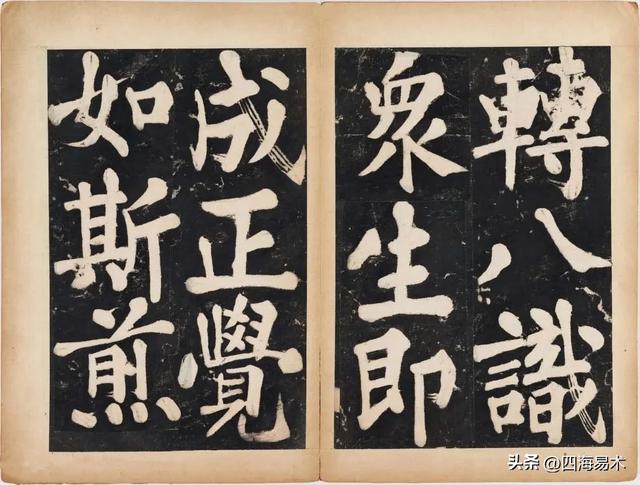 轉八識
衆生即
成正覺
如斯煎
头条 @四海易木